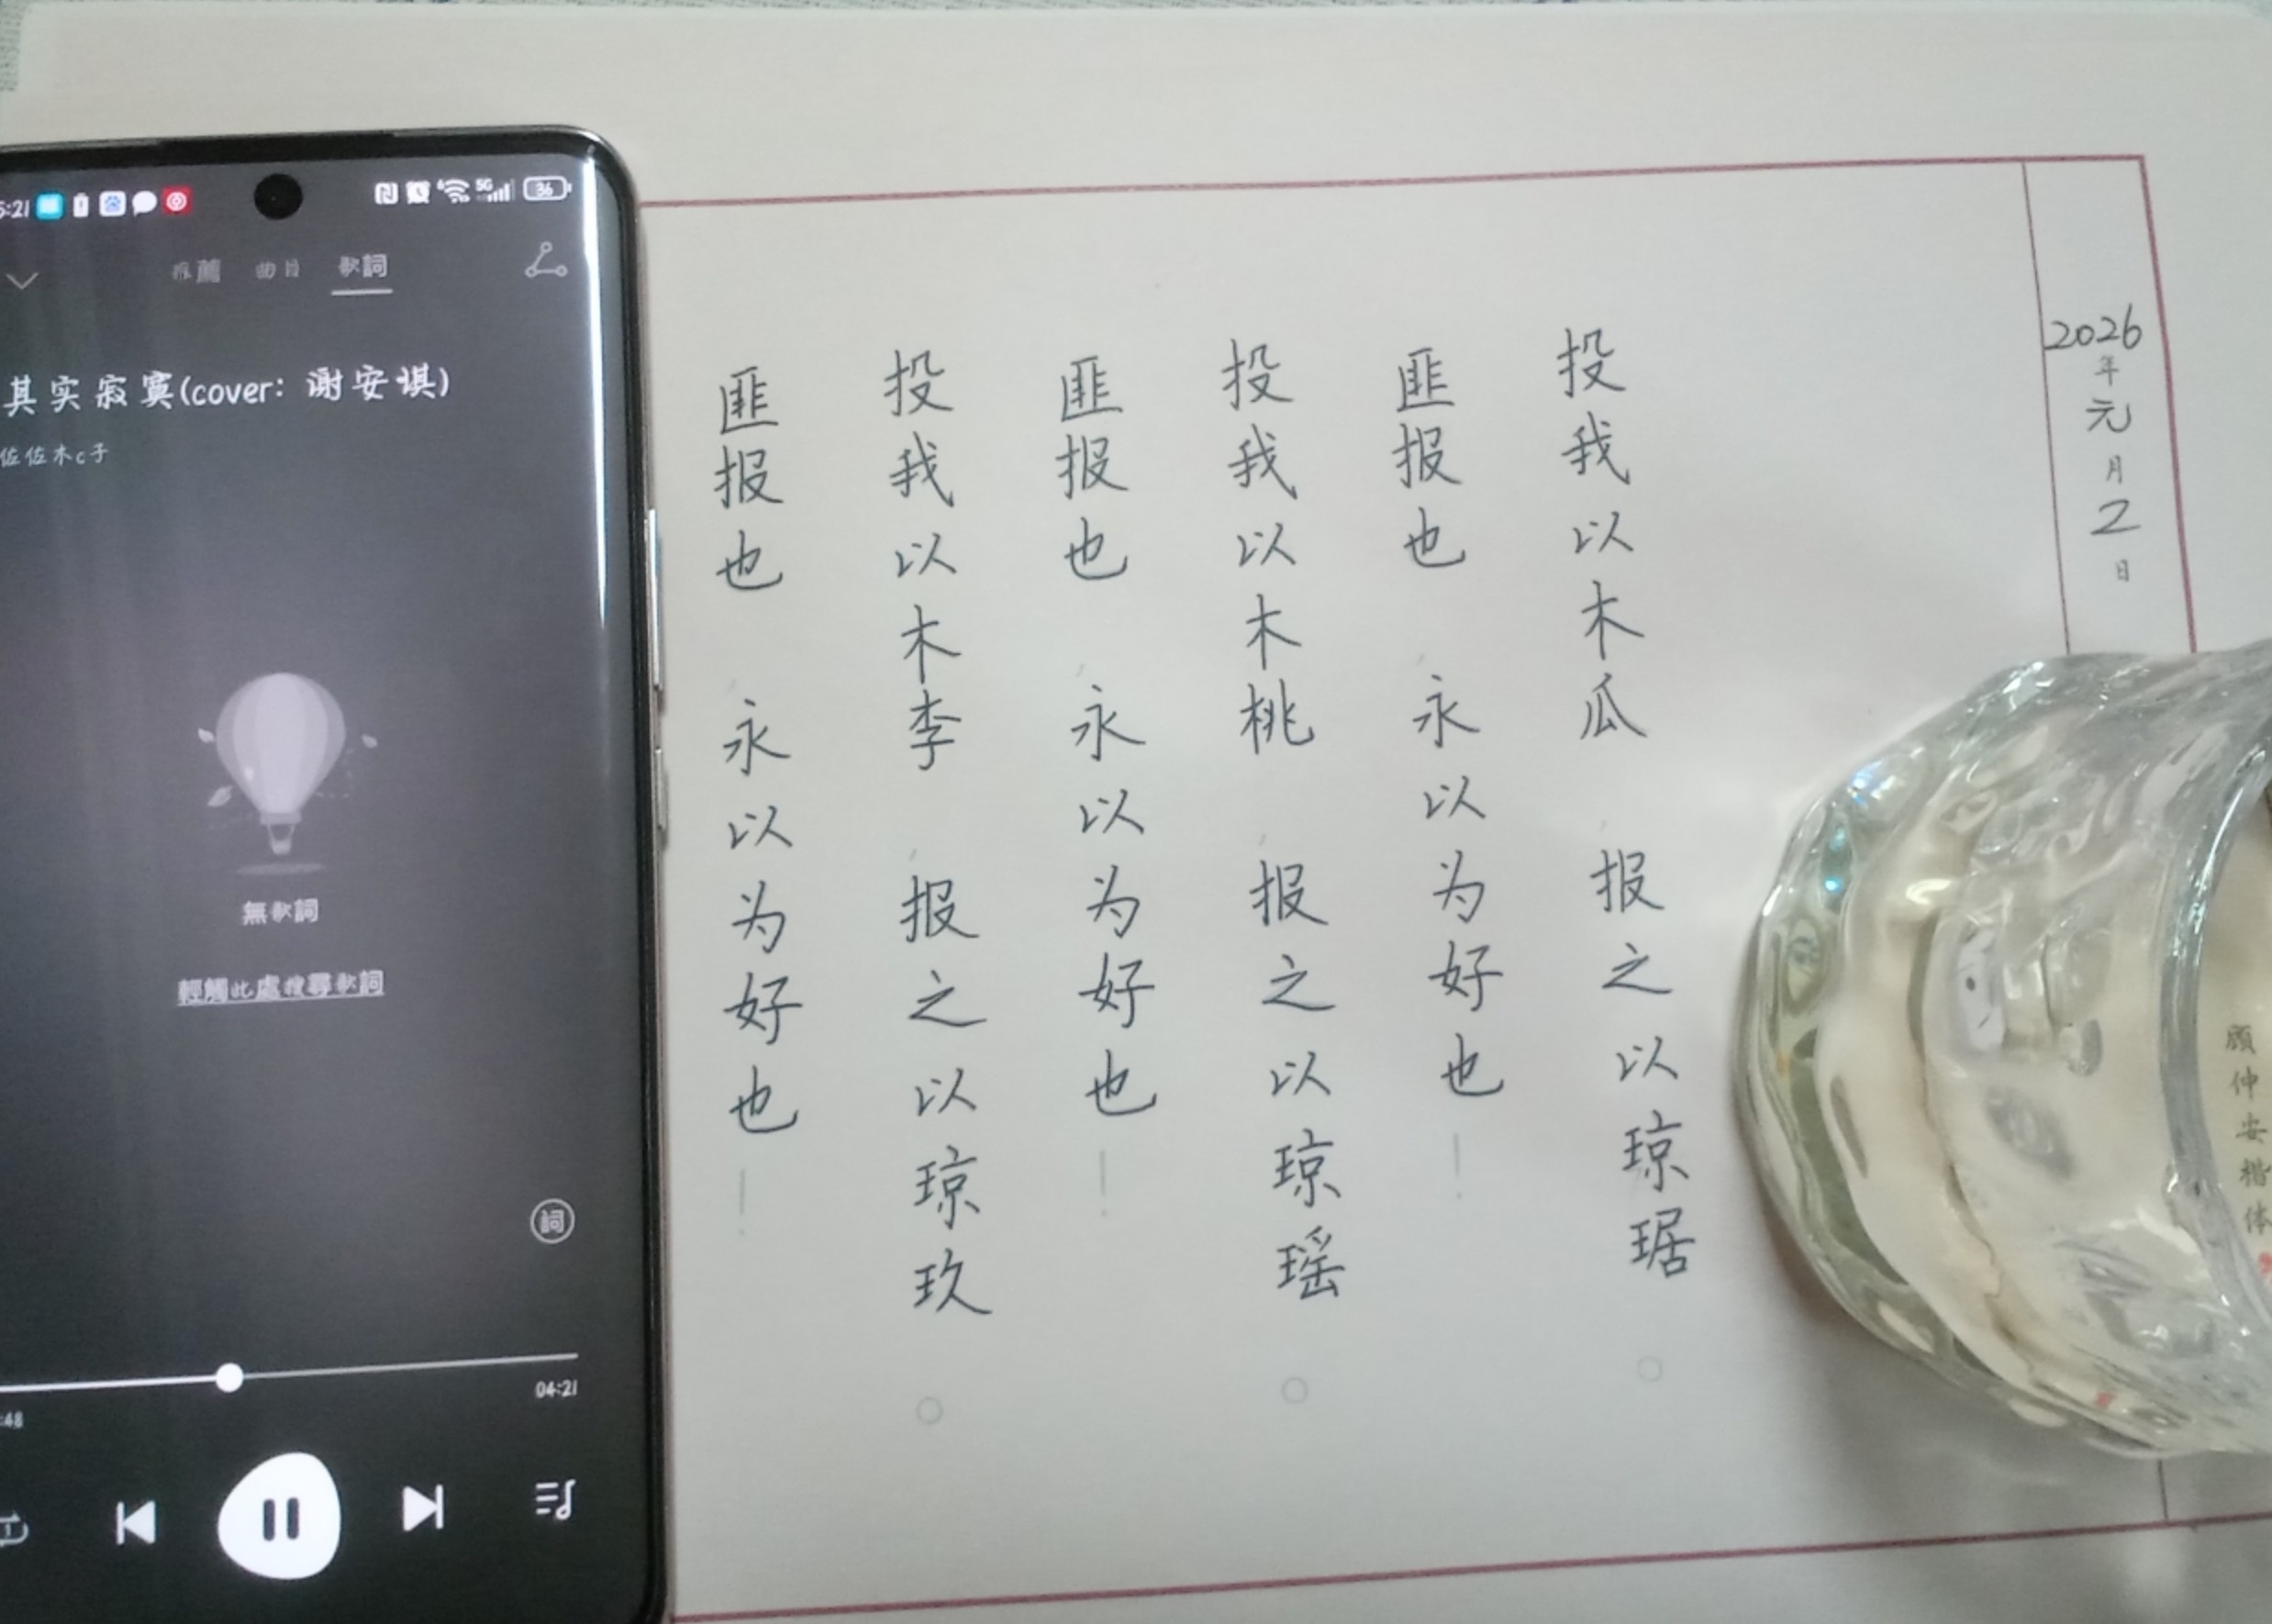 2026年元月2日
投我以木瓜，报之以琼琚。
匪报也，永以为好也！
投我以木桃，报之以琼瑶。
匪报也，永以为好也！
投我以木李，报之以琼玖。
匪报也，永以为好也！
顾仲安楷体
5:21
5G
36
推薦 曲目 歌詞
其实寂寞(cover: 谢安琪)
佐佐木c子
無歌詞
輕觸此處搜尋歌詞
詞
:48 04:21